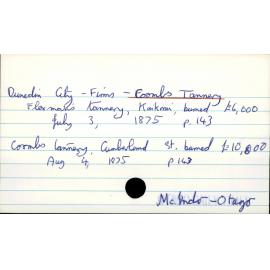 Dunedin City - Firms - Coombs Tannery
Flaxmakis tannery, Kaikorai, burned £6,000
July 3, 1875 p.143
Coombs tannery, Cumberland St. burned £10,000
Aug 4, 1875 p 143
McIndo - Otago